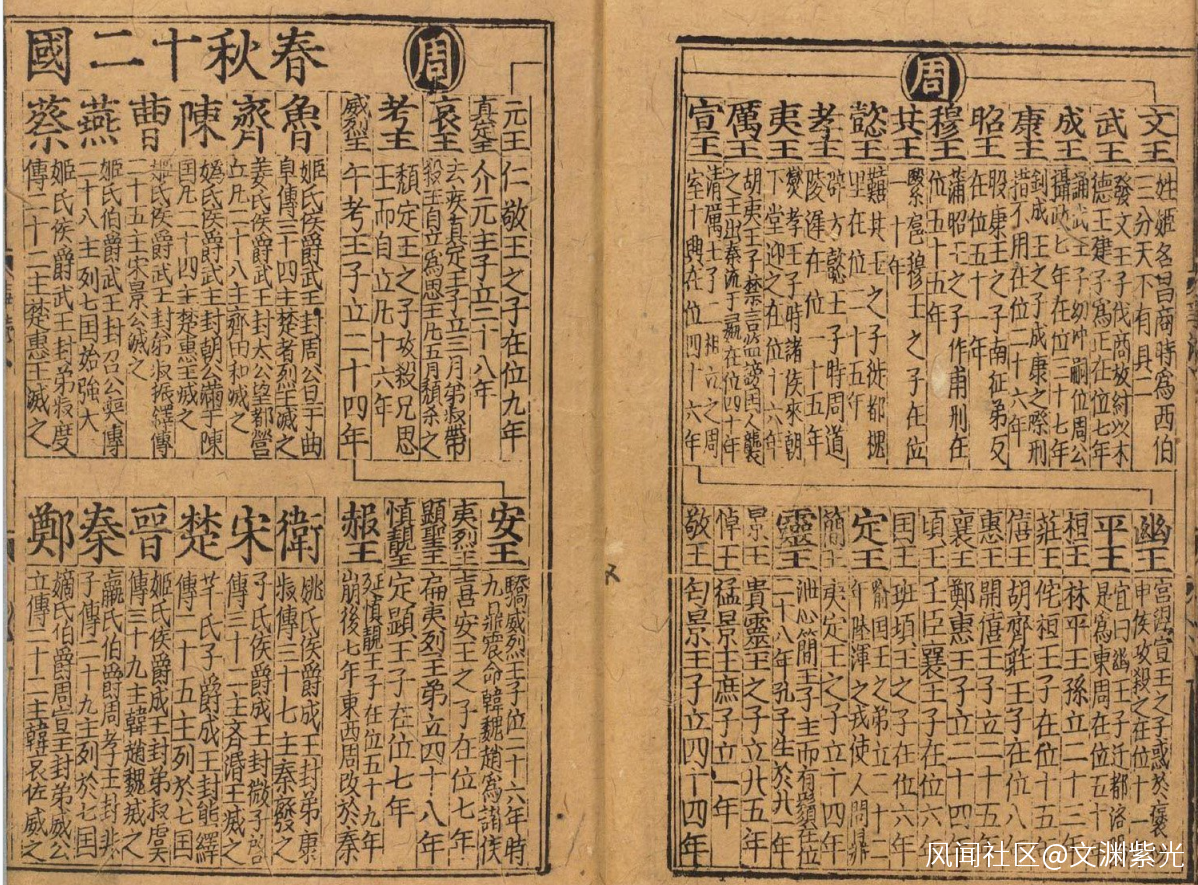 周
文王
姓姬名昌商時爲西伯
三分天下有其二
武王
發文王子伐商放紂以木
德王建子爲正在位七年
成王
誦武王子幼冲嗣位周公
攝政七年在位三十七年
康王
釗成王之子成康之際刑
措不用在位二十六年
昭王
康王之子南征弗反
在位五十一年
穆王
滿昭王之子作甫刑在
位五十五年
共王
繄扈穆王之子在位
一十年
懿王
囏共王之子徙都槐
里在位二十五年
孝王
辟方懿王子時周道
陵遲在位一十五年
夷王
燮孝王子時諸侯來朝
下堂迎之在位十六年
厲王
胡夷王子禁言謗国人襲
之王出奔流于彘在位四十年
宣王
清厲王子二相立之周
室中興在位四十六年
幽王
宮湼宣王之子惑於褒
申侯攻殺之在位十一
平王
宜臼幽王子迁都洛
是爲東周在位五十
桓王
林平王孫立二十三年
莊王
佗桓王子在位十五
僖王
胡齊莊王子在位
惠王
開僖王子立二十五年
襄王
鄭惠王子立三十四年
頃王
壬臣襄王子在位六年
国王
班頃王之子在位六年
定王
渝国王之弟立二十二
年陸渾之戎使人問鼎
簡王
夷定王之子立十四年
靈王
泄心簡王子生而有鬚在位
二十八年孔子生於
景王
貴靈王之子立廿五年
悼王
猛景王庶子立一年
敬王
匄景王子立四十四年
周
元王
仁敬王之子在位九年
真定王
介元王子立二十八年
哀王
去疾真定王子立三月弟叔帶
殺王自立爲思王凡五月頹杀之
考王
頹定王之子攻殺兄思
王而自立凡十六年
威烈王
午考王子立二十四年
安王
驕威烈王子位二十六年時
九鼎震命韓魏趙爲諸侯
夷烈王
喜安王之子在位七年
顯聖王
扁夷列王弟立四十八年
慎靚王
定顯王子在位七年
赧王
延慎靚王子在位五十九年
崩後七年東西周改於秦
春秋十二國
魯
姬氏侯爵武王封周公旦于曲
阜傳三十四主楚考烈王滅之
齊
姜氏侯爵武王封太公望都營
丘凡二十八主齊田和滅之
陳
嬀氏侯爵武王封胡公滿于陳
国凡二十四主楚惠王滅之
曹
姬氏侯爵武王封弟叔振鐸傳
二十五主宋景公滅之
燕
姬氏伯爵武王封召公奭傳
二十八主列七国始強大
蔡
姬氏侯爵武王封弟叔度
傳二十二主楚惠王滅之
衛
姚氏侯爵成王封弟康
叔傳三十七主秦廢之
宋
子氏侯爵成王封微子啓
傳三十二主齊湣王滅之
楚
芊氏子爵成王封熊繹
傳二十五主列於七国
晉
姬氏侯爵成王封弟叔虞
傳三十九主韓趙魏滅之
秦
嬴氏伯爵周孝王封非
子傳二十九主列於七国
鄭
嫡氏伯爵周宣王封弟威公
立傳二十二主韓哀佐滅之
风闻社区@文渊紫光